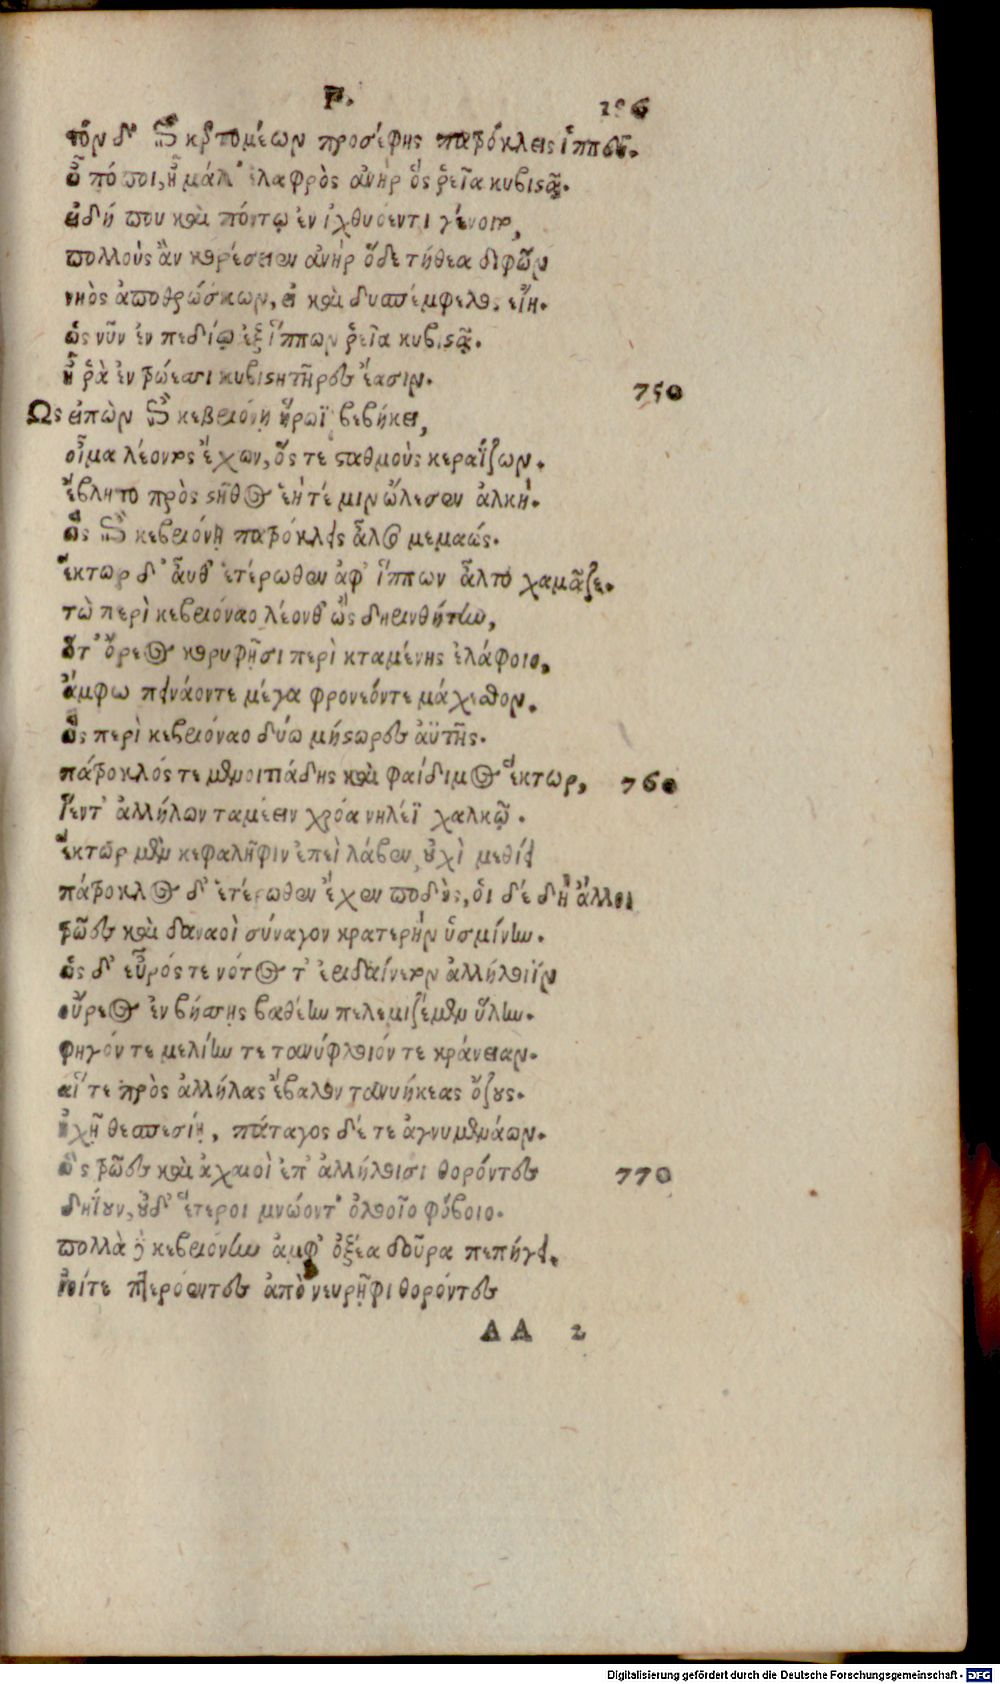 Ρ. 196
τὸν δ' ἐπικερτομέων προσέφης πατρόκλεις ἱππεῦ.
ὢ πόποι, ἦ μάλ' ἐλαφρὸς ἀνὴρ ὃς ῥεῖα κυβιστᾷ.
εἰ δή που καὶ πόντῳ ἐν ἰχθυόεντι γένοιτο,
πολλοὺς ἂν κορέσειεν ἀνὴρ ὅδε τήθεα διφῶν
νηὸς ἀποθρώσκων, εἰ καὶ δυσπέμφελος εἴη.
ὡς νῦν ἐν πεδίῳ ἐξ ἵππων ῥεῖα κυβιστᾷ.
ἦ ῥὰ ἐν τρώεσσι κυβιστητῆρες ἔασιν.
750
Ὣς εἰπὼν ἐπὶ κεβριόνῃ ἥρωϊ βεβήκει,
οἶμα λέοντος ἔχων, ὅς τε σταθμοὺς κεραΐζων.
ἔβλητο πρὸς στῆθος ἑή τέ μιν ὤλεσεν ἀλκή.
ὣς ἐπὶ κεβριόνῃ πατρόκλεις ἆλσο μεμαώς.
ἕκτωρ δ' αὖθ' ἑτέρωθεν ἀφ' ἵππων ἆλτο χαμᾶζε.
τὼ περὶ κεβριόναο λέονθ' ὣς δηρινθήτην,
ὥτ' ὄρεος κορυφῇσι περὶ κταμένης ἐλάφοιο,
ἄμφω πεινάοντε μέγα φρονεόντε μάχεσθον.
ὣς περὶ κεβριόναο δύω μήστωρες ἀϋτῆς.
πάτροκλός τε μενοιτιάδης καὶ φαίδιμος ἕκτωρ, 760
ἵεντ' ἀλλήλων ταμέειν χρόα νηλέϊ χαλκῷ.
ἕκτωρ μὲν κεφαλῆφιν ἐπεὶ λάβεν οὐχὶ μεθίει
πάτροκλος δ' ἑτέρωθεν ἔχεν ποδὸς, οἱ δὲ δὴ ἄλλοι
τρῶες καὶ δαναοὶ σύναγον κρατερὴν ὑσμίνην.
ὡς δ' εὖρός τε νότος τ' ἐριδαίνετον ἀλλήλοιϊν
οὔρεος ἐν βήσσῃς βαθέην πελεμιζέμεν ὕλην.
φηγόν τε μελίην τε τανύφλοιόν τε κράνειαν.
αἵ τε πρὸς ἀλλήλας ἔβαλον τανυήκεας ὄζους.
ἠχῇ θεσπεσίῃ, πάταγος δέ τε ἀγνυμενάων.
ὣς τρῶες καὶ ἀχαιοὶ ἐπ' ἀλλήλοισι θορόντες 770
δῄουν, οὐδ' ἕτεροι μνώοντ' ὀλοοῖο φόβοιο.
πολλὰ δὲ κεβριόνην ἀμφ' ὀξέα δοῦρα πεπήγει.
ἰοί τε πτερόεντες ἀπὸ νευρῆφι θορόντες
AA 2
Digitalisierung gefördert durch die Deutsche Forschungsgemeinschaft - DFG